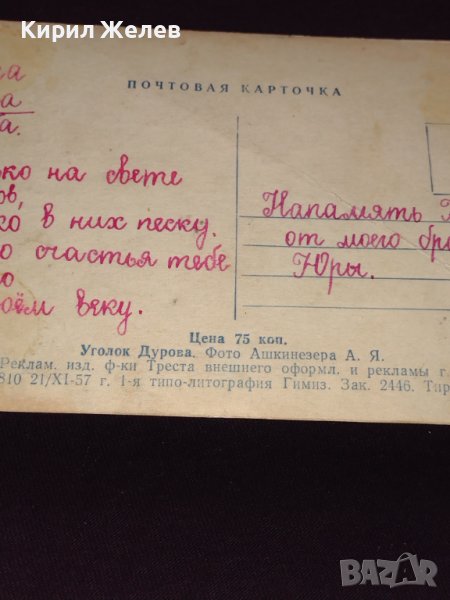 Кирил Желев
ПОЧТОВАЯ КАРТОЧКА
на свете
в них песку.
счастья тебе
веку.
Напамять
от моего
Юры.
Цена 75 коп.
Уголок Дурова. Фото Ашкинезера А. Я.
Реклам. изд. ф-ки Треста внешнего оформл. и рекламы г.
810 21/XI-57 г. 1-я типо-литография Гимиз. Зак. 2446. Тир
BAZAR